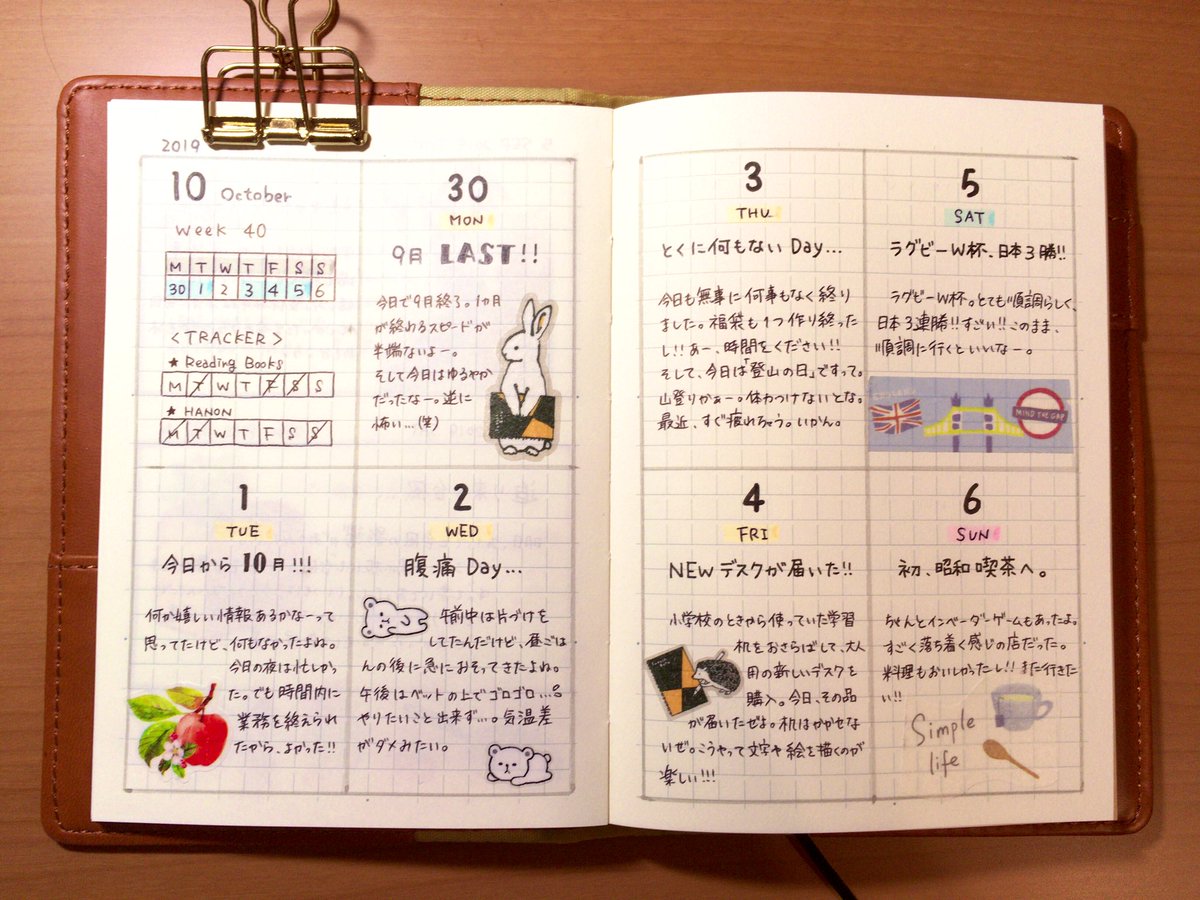 2019
10 October
Week 40
M T W T F S S
30 1 2 3 4 5 6
<TRACKER>
★ Reading Books
M T W T F S S
★ HANON
M T W T F S S
30
MON
9月 LAST!!
今日で9月終了。1ヵ月
が終わるスピードが
半端ないよー。
そして今日はゆるやか
だったなー。逆に
怖い…(笑)
1
TUE
今日から10月!!!
何か嬉しい情報あるかなーって
思ってたけど、何もなかったよね。
今日の夜は忙しかっ
た。でも時間内に
業務を終えられ
たから、よかった!!
2
WED
腹痛 Day...
午前中は片づけを
してたんだけど、昼ごは
んの後に急におそってきたよね。
午後はベットの上でゴロゴロ…。
やりたいこと出来ず…。気温差
がダメみたい。
3
THU
とくに何もない Day...
今日も無事に何事もなく終り
ました。福袋も1つ作り終った
し!!あー、時間をください!!
そして、今日は「登山の日」ですって。
山登りかぁー。体力つけないとな。
最近、すぐ疲れちゃう。いかん。
4
FRI
NEWデスクが届いた!!
小学校のときから使っていた学習
机をおさらばして、大人
用の新しいデスクを
購入。今日、その品
が届いたぜよ。机はかかせな
いぜ。こうやって文字や絵を描くのが
楽しい!!!
5
SAT
ラグビーW杯、日本3勝!!
ラグビーW杯。とても順調らしく、
日本3連勝!!すごい!!このまま、
順調に行くといいなー。
MIND THE GAP
6
SUN
初、昭和喫茶へ。
ちゃんとインベーダーゲームもあったよ。
すごく落ち着く感じの店だった。
料理もおいしかったし!!また行きた
い!!
Simple
life